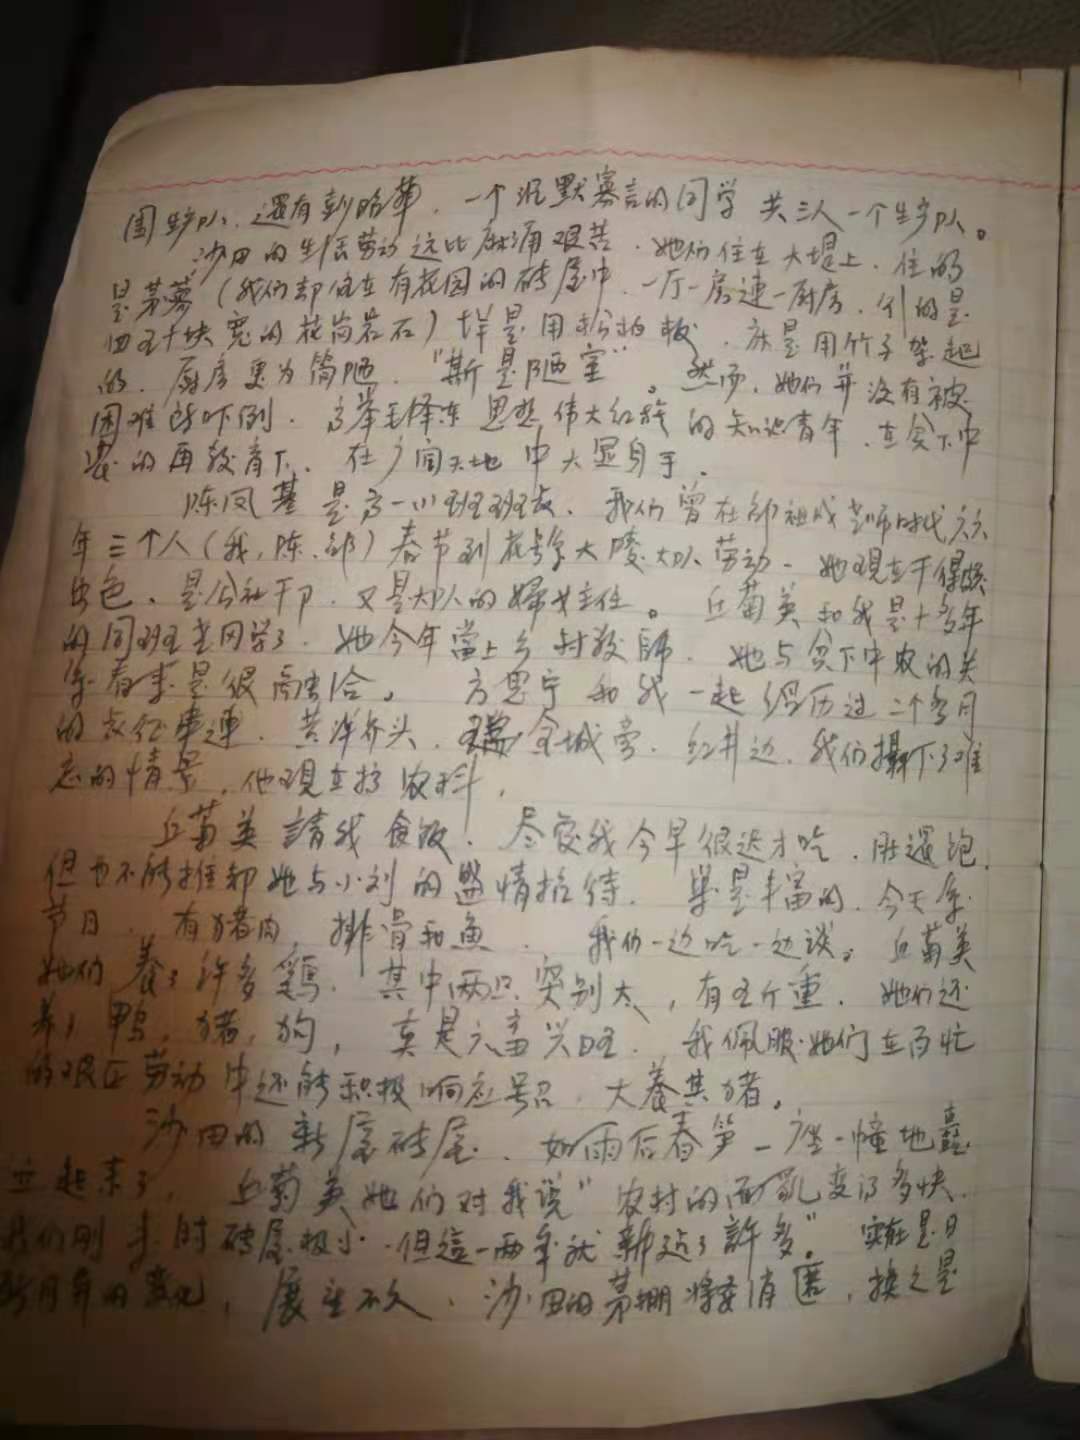 围生产队，还有刘昭华，一个沉默寡言的同学共三人一个生产队。
沙田的生活劳动远比麻涌艰苟，她们住在大堤上，住的
是茅藔（我们却住在有花园的砖屋中，一厅一房連一厨房，的是
四五十块宽的花岗岩石）墙是用板，床是用竹子架起
的，厨房更为简陋，“斯是陋室”。然而，她们并没有被
困难所吓倒，高举毛泽东思想伟大红旗的知识青年，在贫下中
农的再教育下，在广阔天地中大显身手。
陈凤基是高一(1)班班长，我们曾在邹祖成老师时代六六
年三个人（我，陈，邹）春节到大队劳动，她現在干得很
出色，是公社干卩，又是大队的婦女主任。丘菊英和我是十多年
的同班老同学了，她今年當上乡村教師，她与贫下中农的关
系看来是很融洽。方思宁和我一起经历过二个多月
的长征串連，黄洋界头，瑞金城旁，红井边，我们攝下了难
忘的情景，他現在搞农科，
丘菊英請我食饭，尽管我今早很迟才吃，肚還饱，
但也不能推却她与小刘的盛情招待，菜是丰富的，今天系
节日，有猪肉，排骨和鱼，我们一边吃一边谈。丘菊英
她们養了許多鷄，其中两只突别大，有五斤重，她们还
养了鸭，猪，狗，真是六畜兴旺，我佩服她们在百忙
的艰巨劳动中还能积极响应号召，大養其猪。
沙田的新屋砖屋，如雨后春笋一座一幢地矗
立起来了，丘菊英她们对我说“农村的面貌变得多快，
我们刚来时砖屋极小，但這一两年就新建了許多”。实在是日
新月异的变化，展望不久，沙田的茅棚将要消匿，换之是